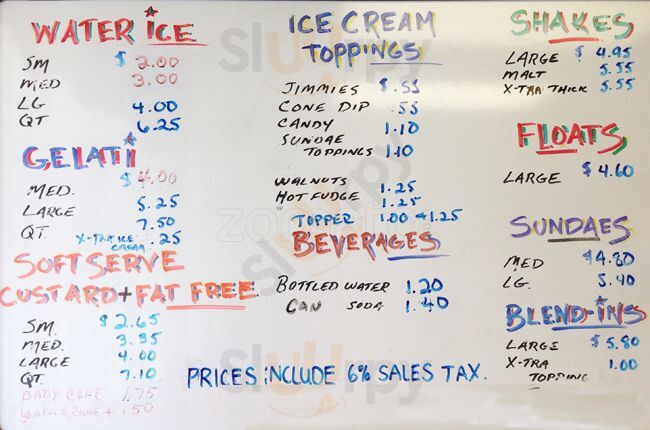 WATER ICE
SM $ 2.00
MED 3.00
LG 4.00
QT 6.25
GELATI
MED. $ 4.00
LARGE 5.25
QT 7.50
X-TRA ICE CREAM .25
SOFT SERVE
CUSTARD + FAT FREE
SM. $ 2.65
MED. 3.35
LARGE 4.00
QT. 7.10
BABY CONE 1.75
WAFFLE CONE + .50
ICE CREAM
TOPPINGS
JIMMIES $.55
CONE DIP .55
CANDY 1.10
SUNDAE
TOPPINGS 1.10
WALNUTS 1.25
HOT FUDGE 1.25
TOPPER 1.00 & 1.25
BEVERAGES
BOTTLED WATER 1.20
CAN SODA 1.40
SHAKES
LARGE $ 4.95
MALT 5.55
X-TRA THICK 5.55
FLOATS
LARGE $ 4.60
SUNDAES
MED $4.80
LG. 5.40
BLEND-INS
LARGE $ 5.80
X-TRA 1.00
TOPPING
PRICES INCLUDE 6% SALES TAX.
Slurrpy
Slurrpy
zomato